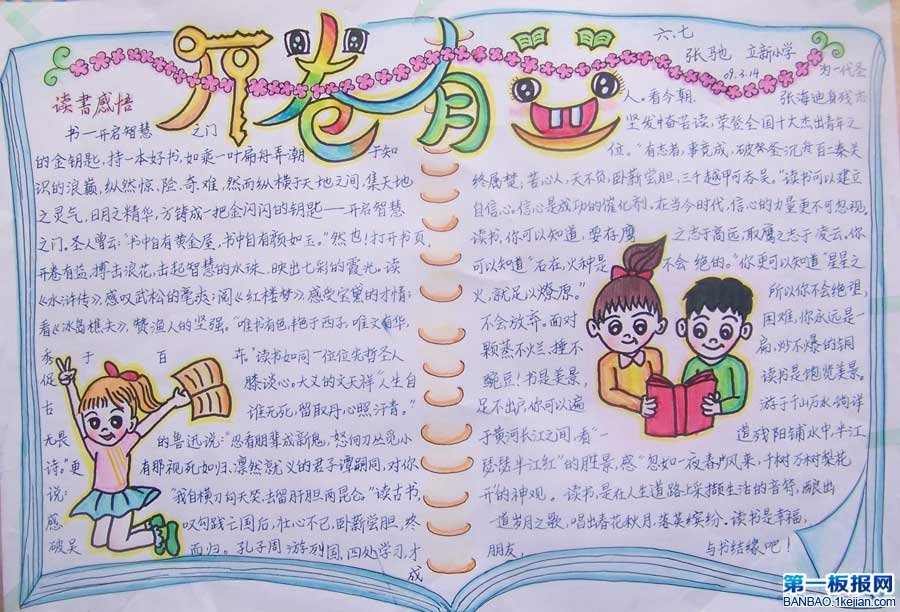 开卷有益
六.七
张驰 立新小学
09.3.14
读书感悟
书—开启智慧之门
的金钥匙,持一本好书,如乘一叶扁舟弄潮于知
识的浪巅,纵然惊、险、奇、难,然而纵横于天地之间,集天地
之灵气,日月之精华,方铸成一把金闪闪的钥匙——开启智慧
之门。圣人曾云:“书中自有黄金屋,书中自有颜如玉。”然也!打开书页,
开卷有益,搏击浪花,击起智慧的水珠,映出七彩的霞光。读
《水浒传》,感叹武松的豪爽;阅《红楼梦》,感受宝黛的才情;
看《冰岛渔夫》,赞渔人的坚强。“唯书有色,艳于西子,唯文有华,
秀于百卉。”读书如同一位位先哲圣人
促膝谈心。大义的文天祥“人生自
古谁无死,留取丹心照汗青。”
无畏的鲁迅说:“忍看朋辈成新鬼,怒向刀丛觅小
诗。”更有那视死如归、凛然就义的君子谭嗣同,对你
说:“我自横刀向天笑,去留肝胆两昆仑。”读古书,
感叹勾践亡国后,壮心不已,卧薪尝胆,终
破吴而归。孔子周游列国,四处学习,才
成
为一代圣
人。看今朝,张海迪身残志
坚发奋苦读,荣登全国十大杰出青年之
位。“有志者,事竟成,破釜沉舟百二秦关
终属楚,苦心人,天不负,卧薪尝胆,三千越甲可吞吴。”读书可以建立
自信心。信心是成功的催化剂。在当今时代,信心的力量更不可忽视。
读书,你可以知道,要存鹰之志于高远,取鹰之志于凌云。你
可以知道“石在,火种是不会绝的。”你更可以知道“星星之
火,就足以燎原。”所以你不会绝望,
不会放弃。面对困难,你永远是一
颗蒸不烂、捶不扁、炒不爆的铜
豌豆!书是美景,读书是饱览美景。
足不出户,你可以遍游于千山万水,徜徉
于黄河长江之间,看“一道残阳铺水中,半江
瑟瑟半江红”的胜景,感“忽如一夜春风来,千树万树梨花
开”的神观。读书,是在人生道路上采撷生活的音符,酿出
一道岁月之歌,唱出春花秋月,落英缤纷。读书是幸福,
朋友,与书结缘吧!
第一板报网
BANBAO.1kejian.com